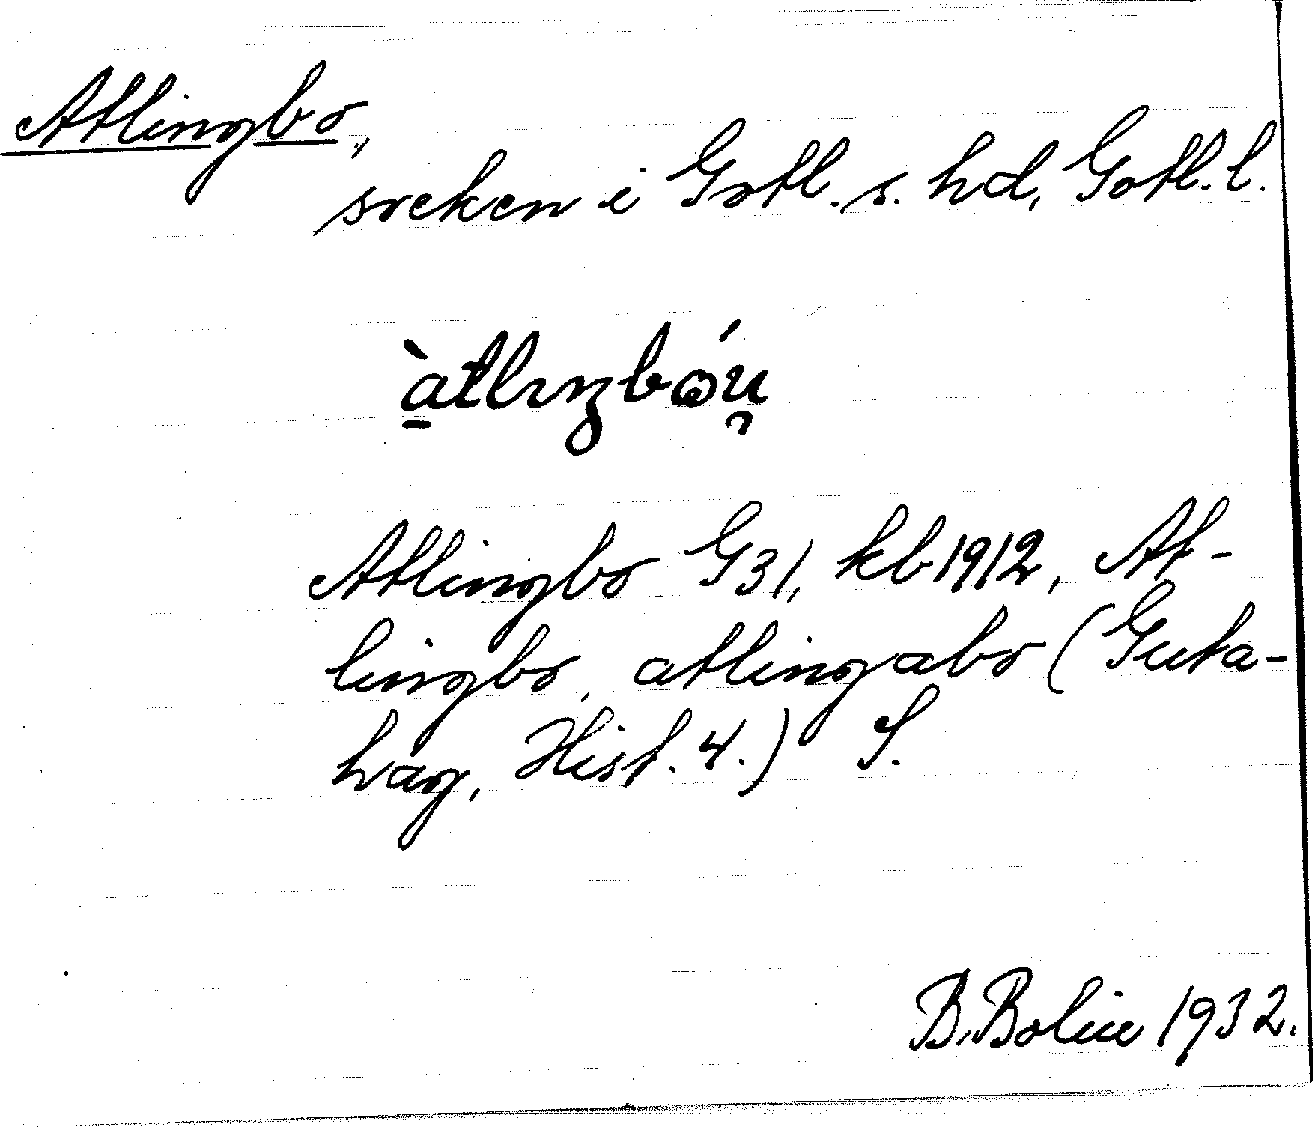 Atlingbo,
socken i Gotl. s. hd, Gotl. l.
àtlıŋbóu̯
Atlingbo G31, kb 1912, At-
lingbo, atlingabo (Guta-
hag, Hist. 4.) S.
B. Bolin 1932.